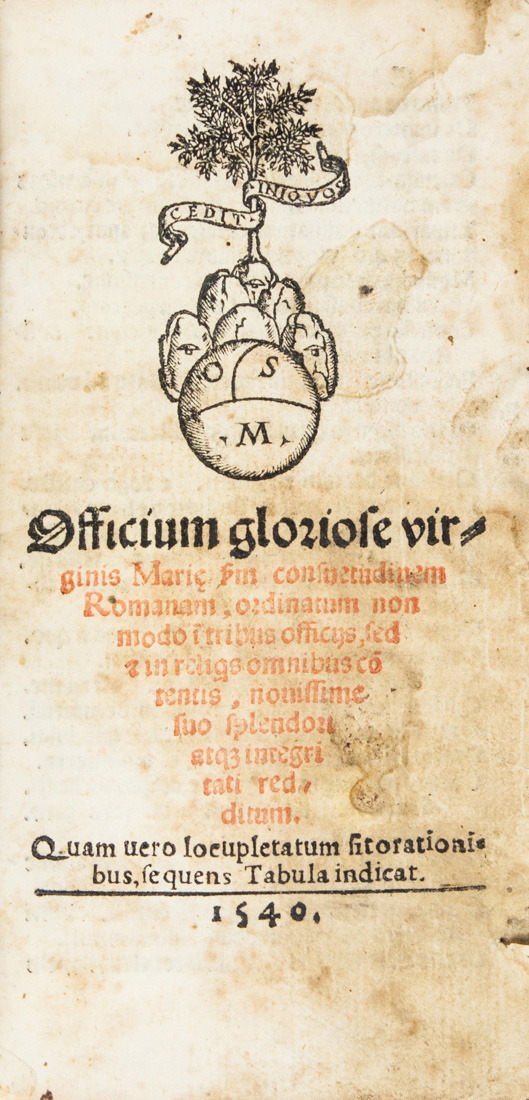 INIQVOS
CEDIT
O S
M
Officium glorioſe vir⸗
ginis Marię ẜm conſuetudinem
Romanam, ordinatum non
modo ī tribus officijs, ſed
⁊ in reliqs omnibus cō
tentis, nouiſſime
ſuo ſplendori
atqꝫ integri
tati red⸗
ditum.
Quam uero locupletatum ſit orationi⸗
bus, ſequens Tabula indicat.
1540.